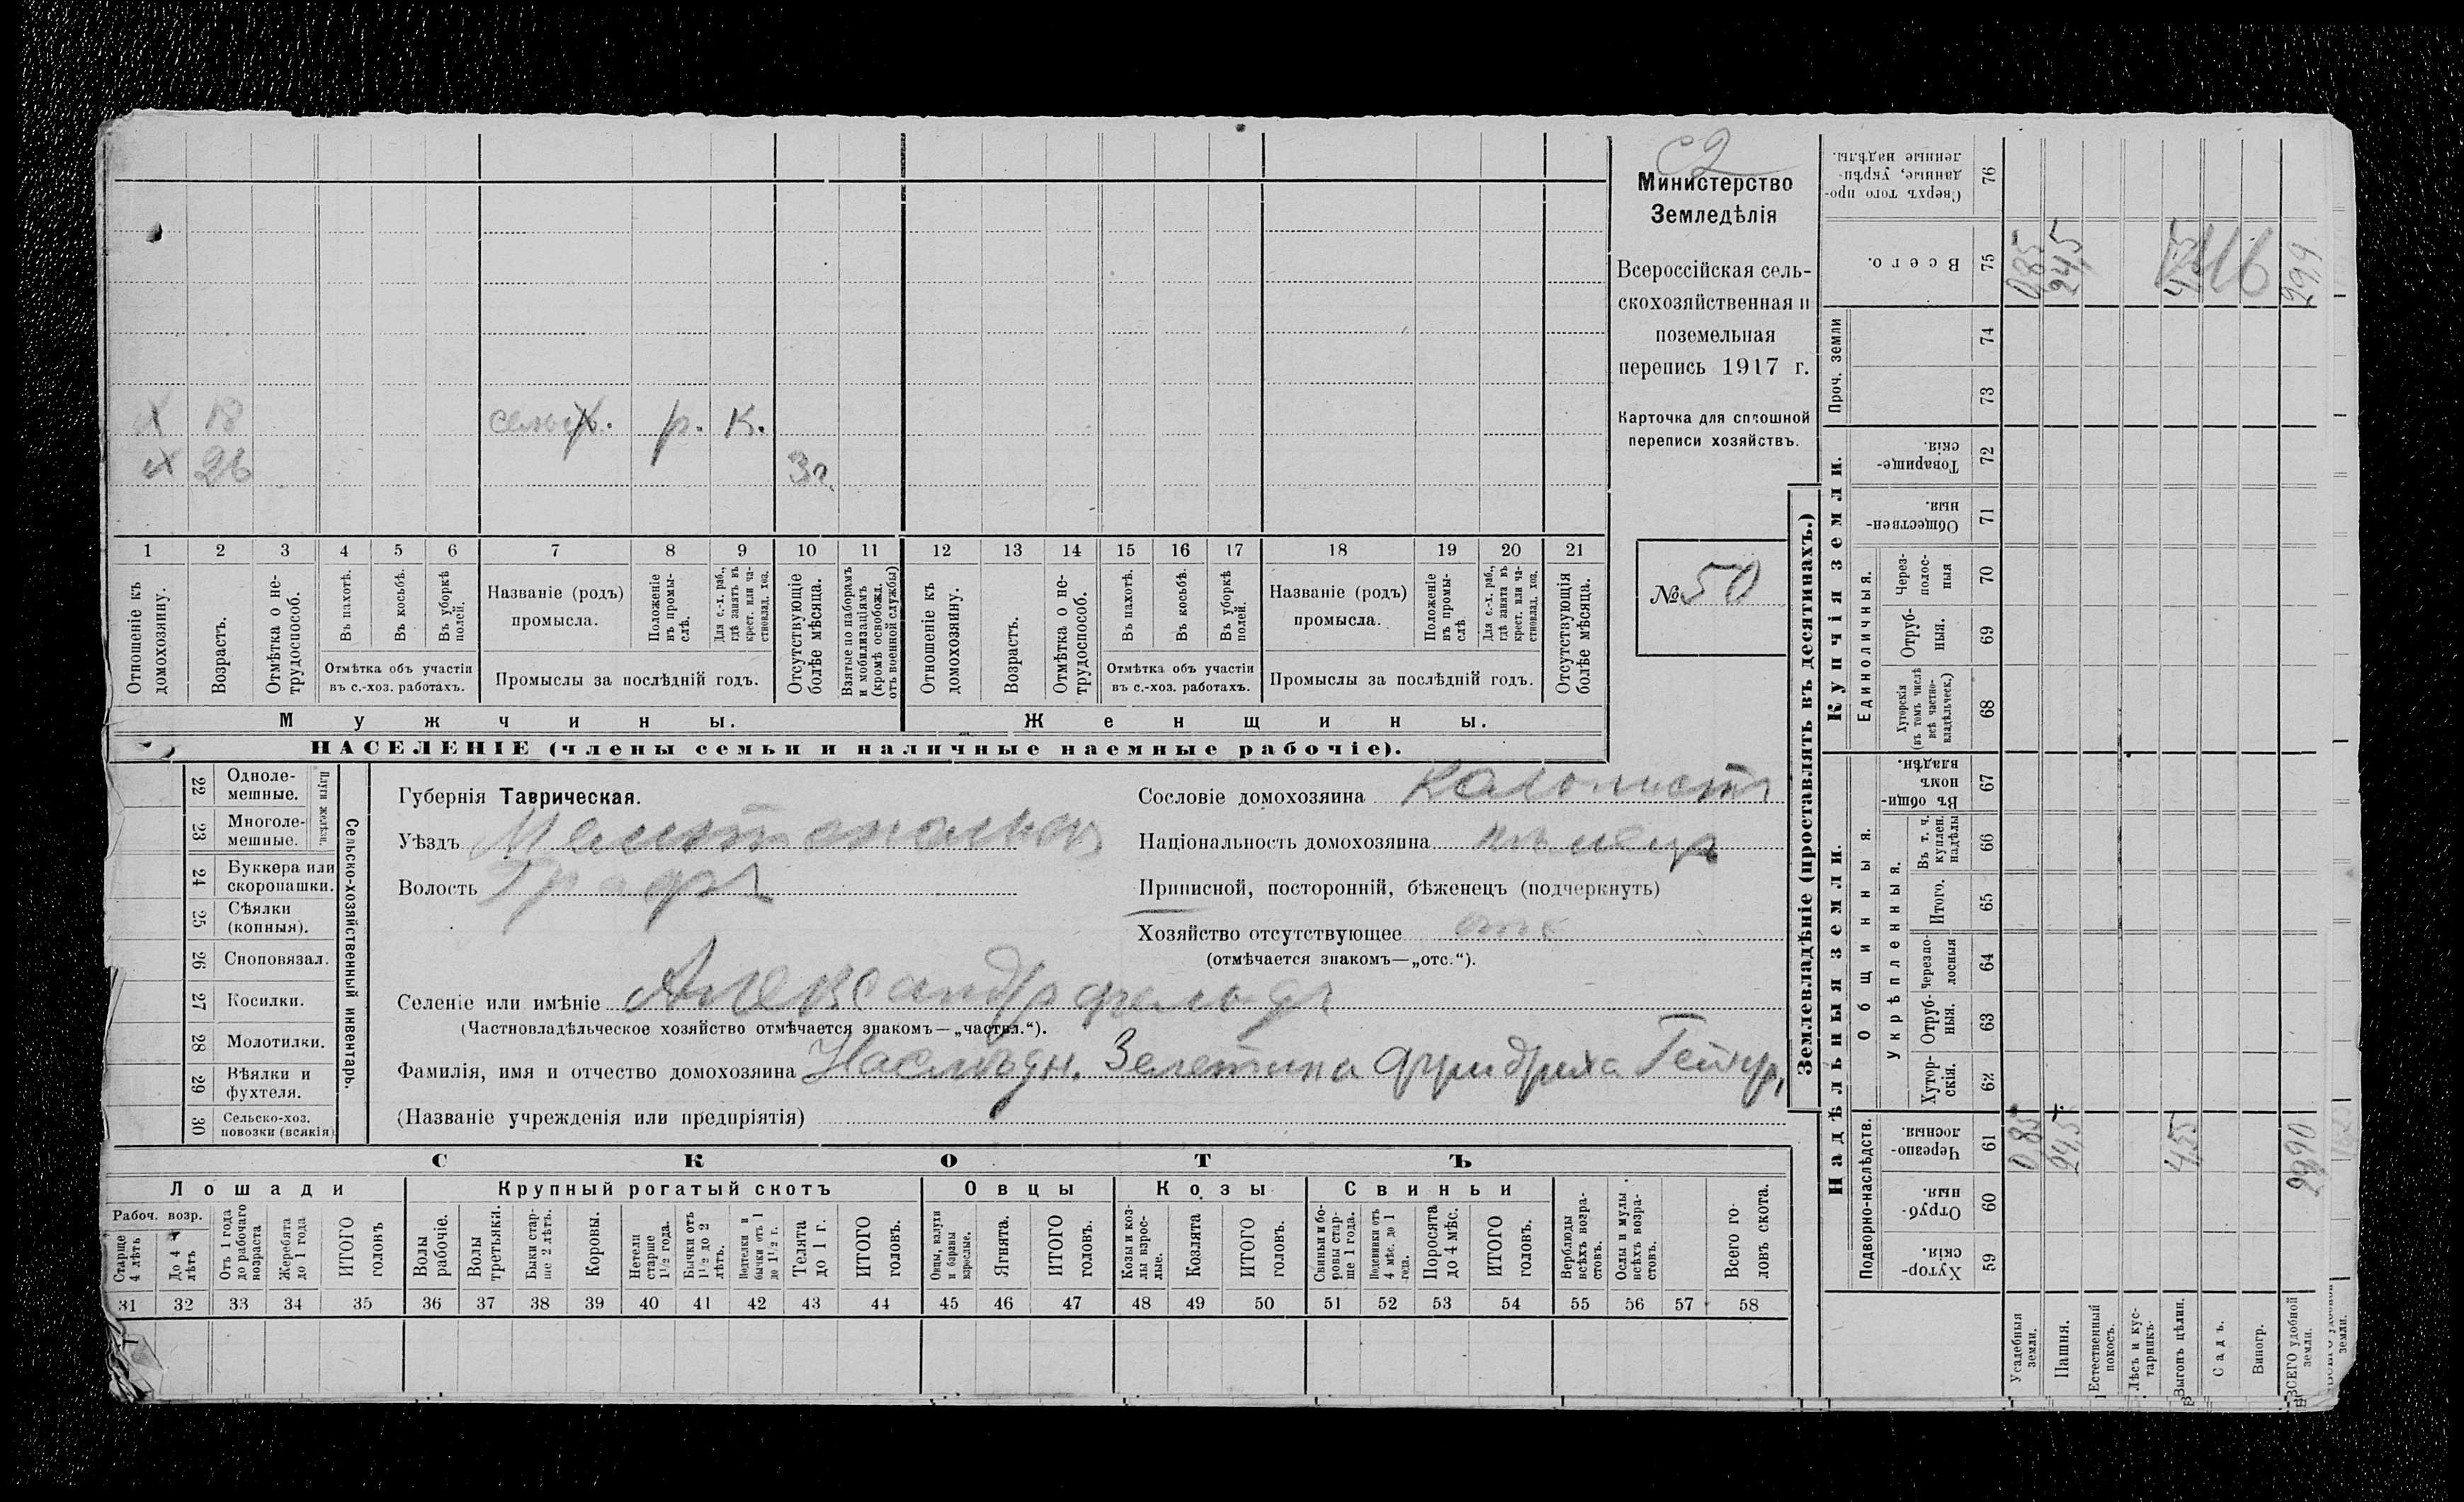 с2
Министерство
Земледѣлія
Всероссійская сель-
скохозяйственная и
поземельная
перепись 1917 г.
Карточка для сплошной
переписи хозяйствъ.
№ 50
х 18 сельх. р. К.
х 26 3 г.
1 2 3 4 5 6 7 8 9 10 11 12 13 14 15 16 17 18 19 20 21
Отношеніе къ домохозяину.
Возрастъ.
Отмѣтка о не-трудоспособ.
Въ пахотѣ.
Въ косьбѣ.
Въ уборкѣ полей.
Отмѣтка объ участіи въ с.-хоз. работахъ.
Названіе (родъ) промысла.
Положеніе въ промы-слѣ.
Для с.-х. раб., гдѣ занятъ въ крест. или ча-стновлад. хоз.
Промыслы за послѣдній годъ.
Отсутствующіе болѣе мѣсяца.
Взятые по наборамъ и мобилизаціямъ (кромѣ освобожд. отъ военной службы)
Отношеніе къ домохозяину.
Возрастъ.
Отмѣтка о не-трудоспособ.
Въ пахотѣ.
Въ косьбѣ.
Въ уборкѣ полей.
Отмѣтка объ участіи въ с.-хоз. работахъ.
Названіе (родъ) промысла.
Положеніе въ промы-слѣ.
Для с.-х. раб., гдѣ занята въ крест. или ча-стновлад. хоз.
Промыслы за послѣдній годъ.
Отсутствующія болѣе мѣсяца.
Мужчины.
Женщины.
НАСЕЛЕНІЕ (члены семьи и наличные наемные рабочіе).
Сельско-хозяйственный инвентарь.
Плуги желѣзн.
22 Одноле-мешные.
23 Многоле-мешные.
24 Буккера или скоропашки.
25 Сѣялки (конныя).
26 Сноповязал.
27 Косилки.
28 Молотилки.
29 Вѣялки и фухтеля.
30 Сельско-хоз. повозки (всякія)
Губернія Таврическая.
Уѣздъ Мелитопольск
Волость
Сословіе домохозяина колонистъ
Національность домохозяина нѣмецъ
Приписной, посторонній, бѣженецъ (подчеркнуть)
Хозяйство отсутствующее отс
(отмѣчается знакомъ—„отс.“).
Селеніе или имѣніе Александрфельдъ
(Частновладѣльческое хозяйство отмѣчается знакомъ—„частвл.“).
Фамилія, имя и отчество домохозяина Наслѣдн. Фридриха
(Названіе учрежденія или предпріятія)
СКОТЪ
Лошади
Крупный рогатый скотъ
Овцы
Козы
Свиньи
Рабоч. возр.
Старше 4 лѣтъ
До 4 лѣтъ
Отъ 1 года до рабочаго возраста
Жеребята до 1 года
ИТОГО головъ
Волы рабочіе.
Волы третьяки.
Быки стар-ше 2 лѣтъ.
Коровы.
Нетели старше 1½ года.
Бычки отъ 1½ до 2 лѣтъ.
Подтелки и бычки отъ 1 до 1½ г.
Телята до 1 г.
ИТОГО головъ.
Овцы, валухи и бараны взрослые.
Ягнята.
ИТОГО головъ.
Козы и коз-лы взрос-лые.
Козлята
ИТОГО головъ.
Свиньи и бо-ровы стар-ше 1 года.
Подсвинки отъ 4 мѣс. до 1 года.
Поросята до 4 мѣс.
ИТОГО головъ.
Верблюды всѣхъ возра-стовъ.
Ослы и мулы всѣхъ возра-стовъ.
Всего го-ловъ скота.
31 32 33 34 35 36 37 38 39 40 41 42 43 44 45 46 47 48 49 50 51 52 53 54 55 56 57 58
Землевладѣніе (проставлять въ десятинахъ.)
Надѣльныя земли.
Купчія земли.
Проч. земли
Подворно-наслѣдств.
Общинныя.
Укрѣпленныя.
Единоличныя.
Хутор-скія. 59
Отруб-ныя. 60
Черезпо-лосныя. 61
Хутор-скія. 62
Отруб-ныя. 63
Черезпо-лосныя 64
Итого. 65
Въ т. ч. куплен. надѣлы 66
Въ общи-номъ владѣн. 67
Хуторскія (въ томъ числѣ всѣ частно-владѣльческ.) 68
Отруб-ныя. 69
Через-полос-ныя 70
Обществен-ныя. 71
Товарище-скія. 72
73
74
Всего. 75
Сверхъ того про-данные, укрѣп-ленные надѣлы. 76
Усадебныя земли. 0,85 0,85
Пашня. 24,5 24,5
Естественный покосъ.
Лѣсъ и кус-тарникъ.
Выгонъ цѣлин. 4,55
Садъ.
Виногр.
ВСЕГО удобной земли. 29,90 29,9